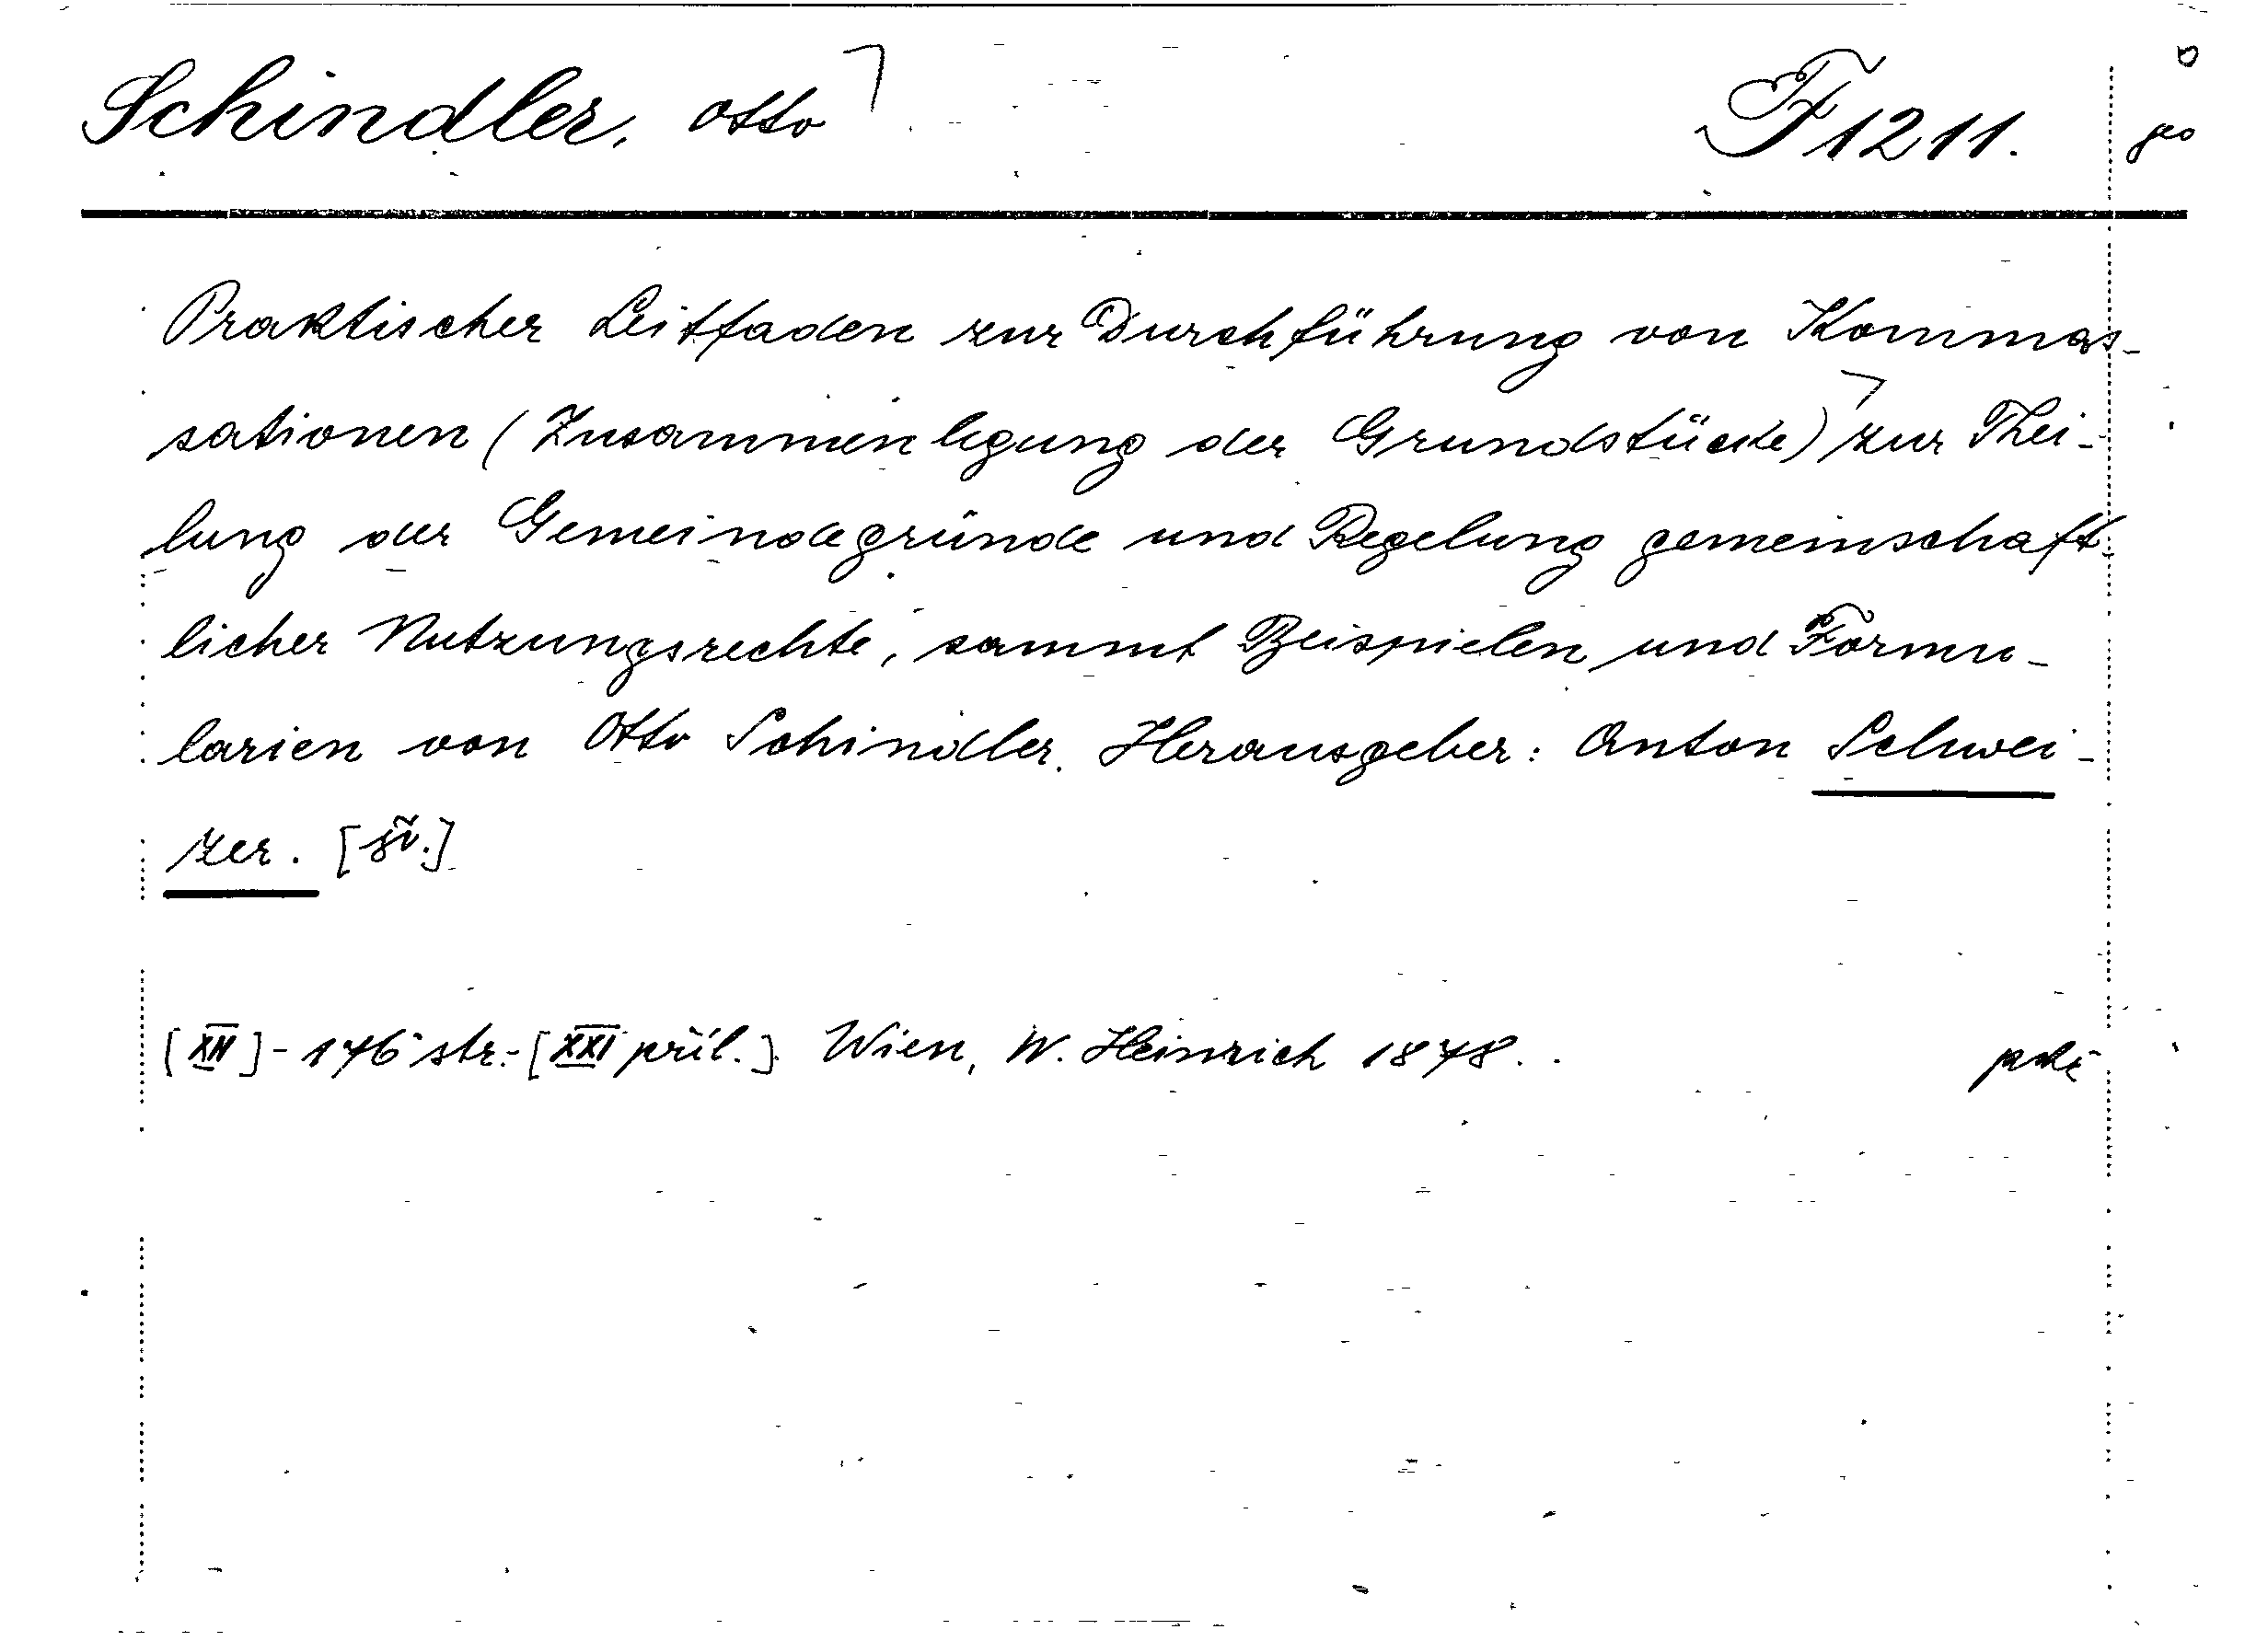 Schindler, Otto F 1211.
Praktischer Leitfaden zur Durchführung von Kommas-
sationen (Zusammenlegung der Grundstücke) zur Thei-
lung der Gemeindegründe und Regelung gemeinschaft-
licher Nutzungsrechte, sammt Beispielen und Formu-
larien von Otto Schindler. Herausgeber: Anton Schwei-
zer.
[XII]-176 str.-[XXI příl.] Wien, W. Heinrich 1878.